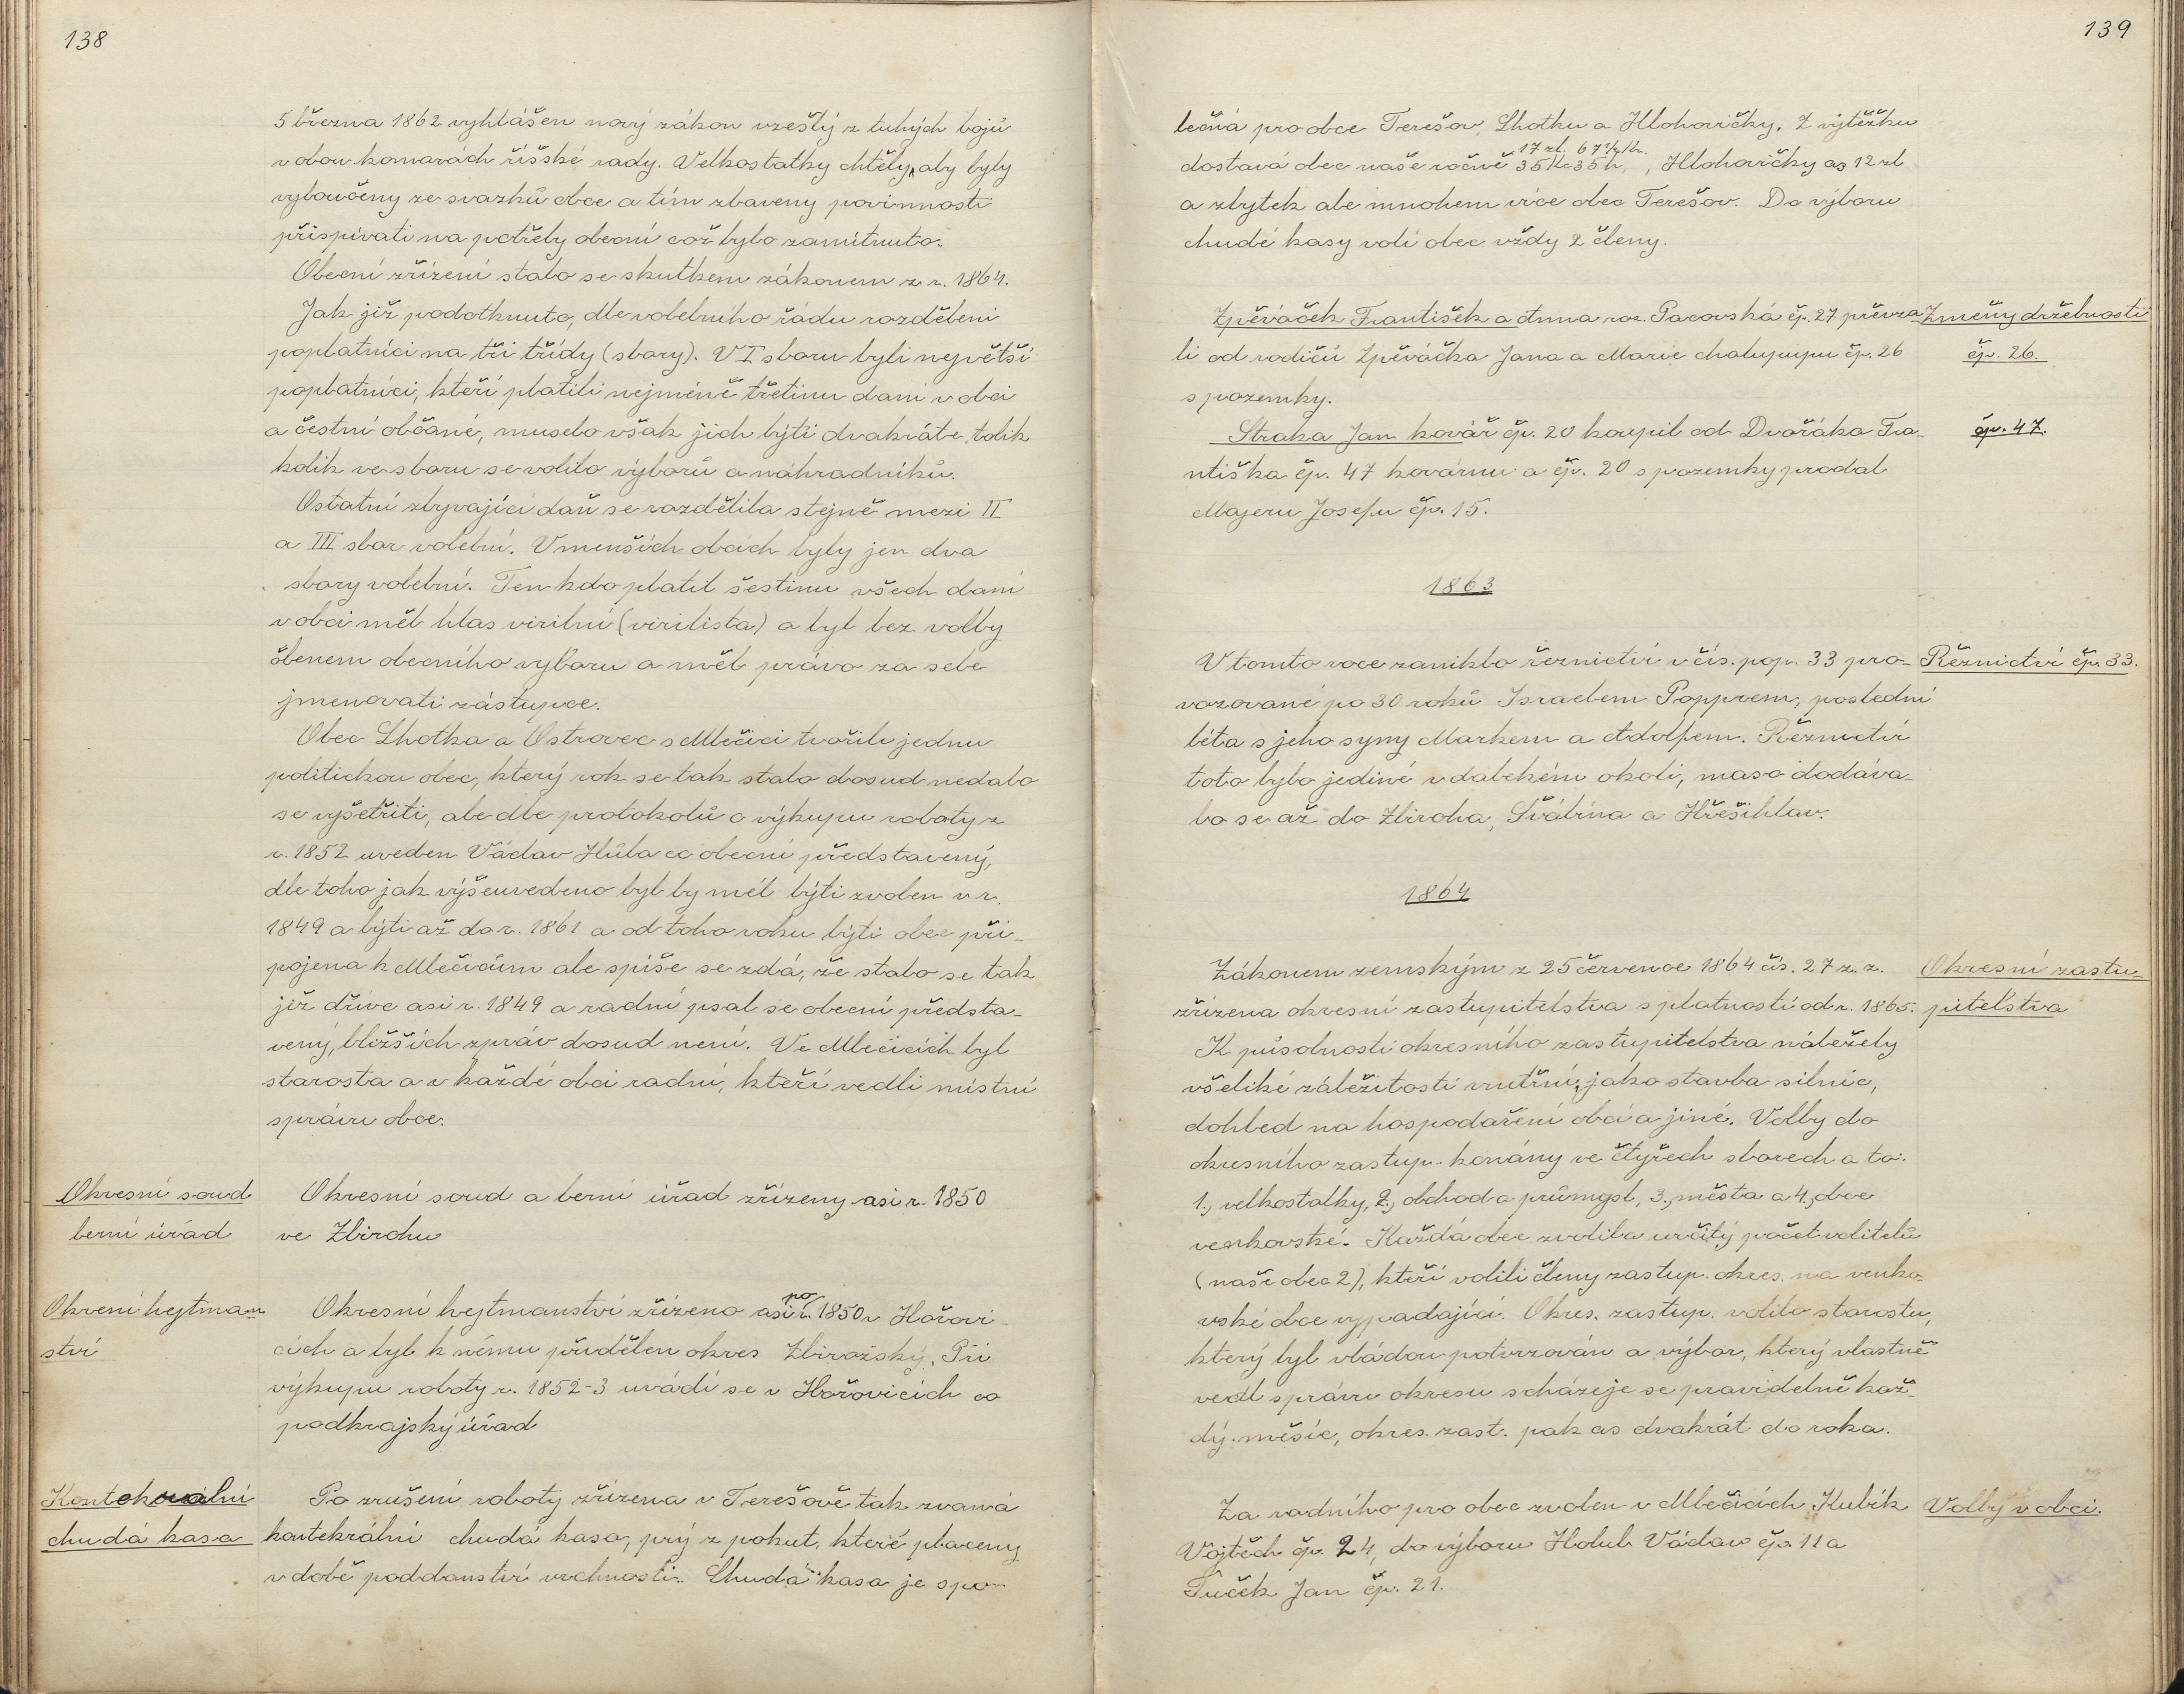 138
5 března 1862 vyhlášen nový zákon vzešlý z tuhých bojů
v obou komorách říšské rady. Velkostatky chtěly, aby byly
vyloučeny ze svazků obce a tím zbaveny povinnosti
přispívati na potřeby obecní což bylo zamítnuto.
Obecní zřízení stalo se skutkem zákonem z r. 1864.
Jak již podotknuto, dle volebního řádu rozděleni
poplatníci na tři třídy (sbory). V I sboru byli největší
poplatníci, kteří platili nejméně třetinu daní v obci
a čestní občané, muselo však jich býti dvakráte tolik
kolik ve sboru se volilo výborů a náhradníků.
Ostatní zbývající daň se rozdělila stejně mezi II
a III sbor volební. V menších obcích byly jen dva
sbory volební. Ten kdo platil šestinu všech daní
v obci měl hlas virilní (virilista) a byl bez volby
členem obecního výboru a měl právo za sebe
jmenovati zástupce.
Obec Lhotka a Ostrovec s Mlečicí tvořili jednu
politickou obec, který rok se tak stalo dosud nedalo
se vyšetřiti, ale dle protokolů o výkupu roboty z
r. 1852 uveden Václav Hůla co obecní představený,
dle toho jak výšeuvedeno byl by měl býti zvolen v r.
1849 a býti až do r. 1861 a od toho roku býti obec při-
pojena k Mlečicům ale spíše se zdá, že stalo se tak
již dříve asi r. 1849 a radní psal se obecní předsta-
vený, bližších zpráv dosud není. Ve Mlečicích byl
starosta a v každé obci radní, kteří vedli místní
správu obce.
Okresní soud
berní úřad
Okresní soud a berní úřad zřízeny asi r. 1850
ve Zbirohu
Okrení hejtman-
ství
po
Okresní hejtmanství zřízeno asi r. 1850 v Hořovi-
cích a byl k němu přidělen okres Zbirožský. Při
výkupu roboty r. 1852-3 uvádí se v Hořovicích co
podkrajský úřad
Kontekrální
chudá kasa
Po zrušení roboty zřízena v Terešově tak zvaná
kontekrální chudá kasa, prý z pokut, které placeny
v době poddanství vrchnosti. Chudá kasa je spo-
139
lečná pro obce Terešov, Lhotku a Hlohovičky. Z výtěžku
17 zl. 67½ kr.
dostavá obec naše ročně 35 Kč 35 h, , Hlohovičky as 12 zl
a zbytek ale mnohem více obec Terešov. Do výboru
chudé kasy volí obec vždy 2 členy.
Zpěváček František a Anna roz. Pacovská čp. 27 převza-
Změny držebnosti
li od rodičů Zpěváčka Jana a Marie chalupupu čp. 26
čp. 26.
s pozemky.
Straka Jan kovář čp. 20 koupil od Dvořáka Fra-
čp. 47.
ntiška čp. 47 kovárnu a čp. 20 s pozemky prodal
Majeru Josefu čp. 15.
1863
V tomto roce zaniklo řeznictví v čís. pop. 33 pro-
Řeznictví čp. 33.
vozované po 30 roků Israelem Popprem, poslední
léta s jeho syny Markem a Adolfem. Řeznictví
toto bylo jediné v dalekém okolí, maso dodáva-
lo se až do Zbiroha, Švábína a Hřešihlav.
1864
Zákonem zemským z 25 července 1864 čís. 27 z. z.
Okresní zastu-
zřízena okresní zastupitelstva s platností od r. 1865.
pitelstva
K působnosti okresního zastupitelstva náležely
všeliké záležitosti vnitřní, jako stavba silnic,
dohled na hospodaření obcí a jiné. Volby do
okresního zastup. konány ve čtyřech sborech a to:
1., velkostatky, 2., obchod a průmysl, 3., města a 4., obce
venkovské. Každá obec zvolila určitý počet volitelů
(naše obec 2), kteří volili členy zastup. okres. na venko-
vské obce vypadající. Okres. zastup. volilo starostu,
který byl vládou potvrzován a výbor, který vlastně
vedl správu okresu scházeje se pravidelně kaž-
dý měsíc, okres. zast. pak as dvakrát do roka.
Za radního pro obec zvolen v Mlečicích Kubík
Volby v obci.
Vojtěch čp. 24, do výboru Holub Václav čp. 11 a
Tuček Jan čp. 21.